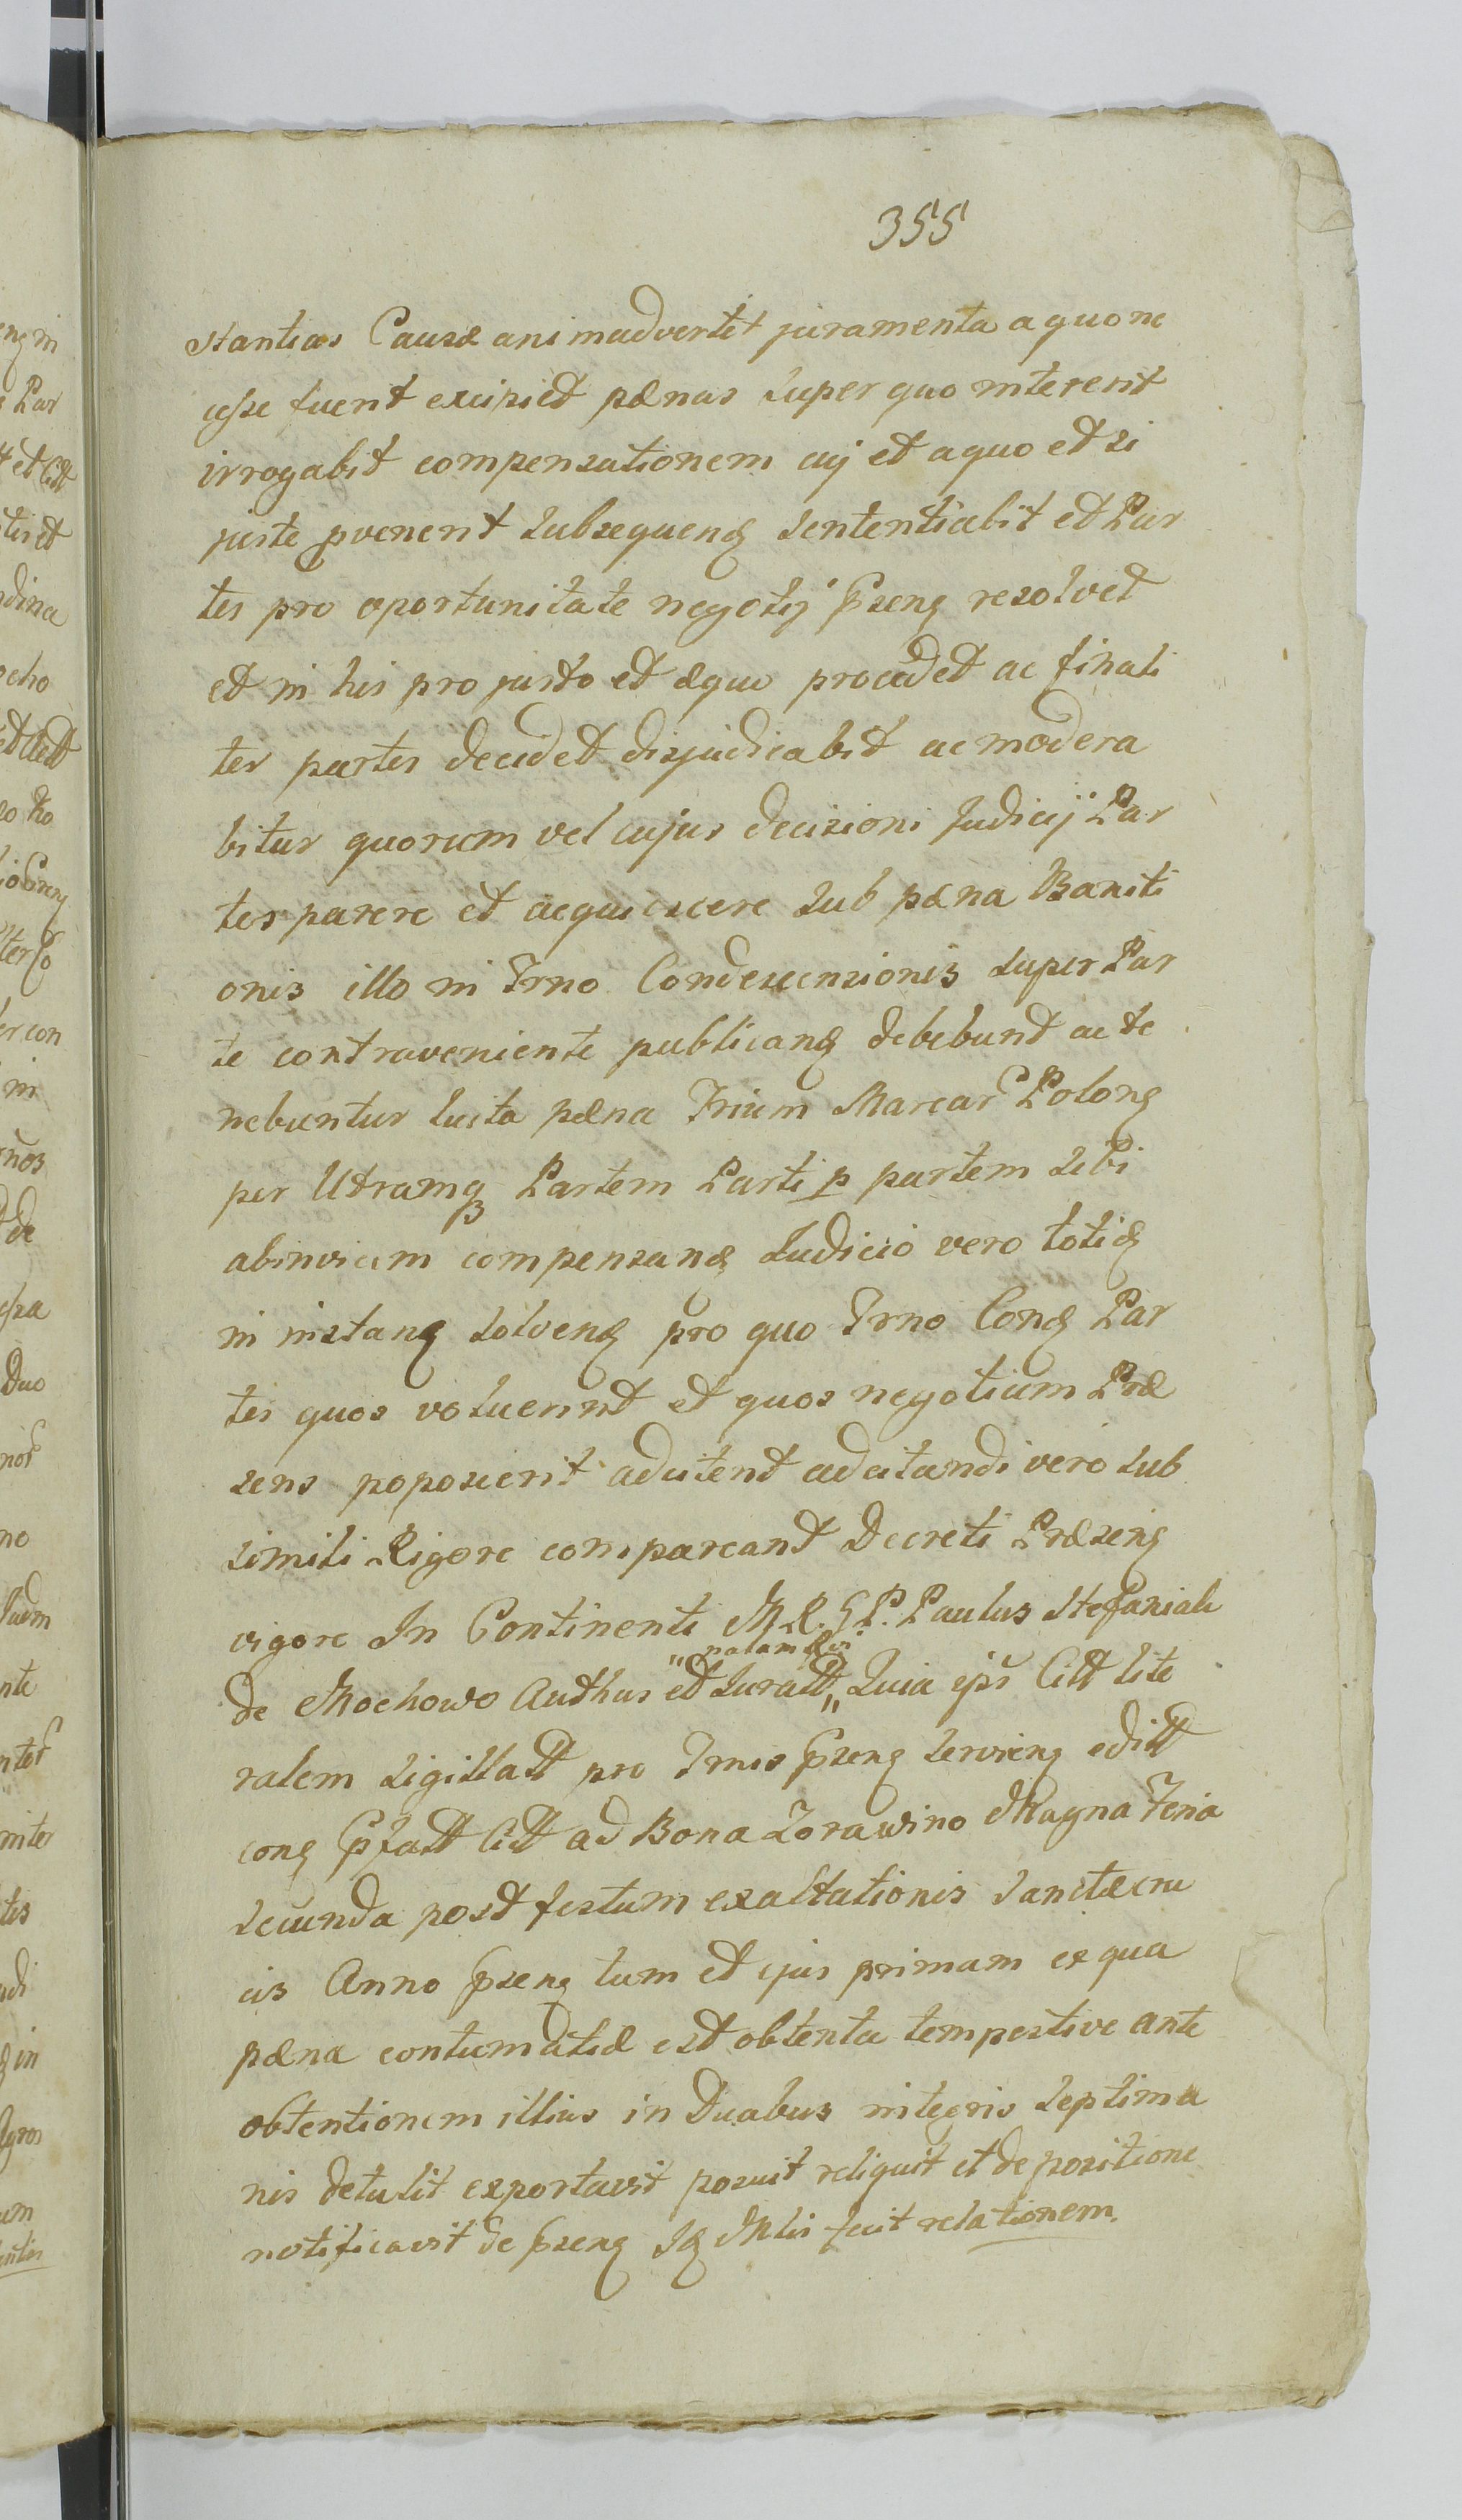 355
stantias Causæ animadvertet juramenta a quo ne
cesse fuerit excipiet pænas super quo intererit
irrogabit compensationem cuj et a quo et si
juste pvenerit subsequen sententiabit et Par
tes pro oportunitate negotij Psens resolvet
et in his pro justo et æquo procedet ac finali
ter partes decidet disjudicabit ac modera
bitur quorum vel cujus decisioni Judicij Par
tes parere et acquiescere sub pæna Baniti
onis illo in Trno Condescensionis super Par
te contraveniente publicand debebunt ac te
nebuntur luita pæna Trium Marcar Polong
per Utramq Partem Parti p partem sibi
abinvicem compensand Judicio vero totid
in instang solvend pro quo Trno Cond Par
tes quos voluerint et quos negotium Præ
sens poposcerit adcitent adcitandi vero sub
simili Rigore compareant Decreti Præseng
vigore In Continenti M.R.G.P. Paulus Stefaniak
de Mochowo Authus et Juratt Quia ipse Citt lite
ralem sigillatt pro Trnis Pseng servieng editt
cong Pfatt Citt ad Bona Zorawino Magna Feria
secunda post festum exaltationis Sanctæ cru
cis Anno Pseng tum et ejus primam ex qua
pæna contumatiæ est obtenta tempestive ante
obtentionem illius in Duabus integris septima
nis detulit exportavit posuit reliquit et de positione
notificavit de Pseng Jd Mlis fecit relationem.